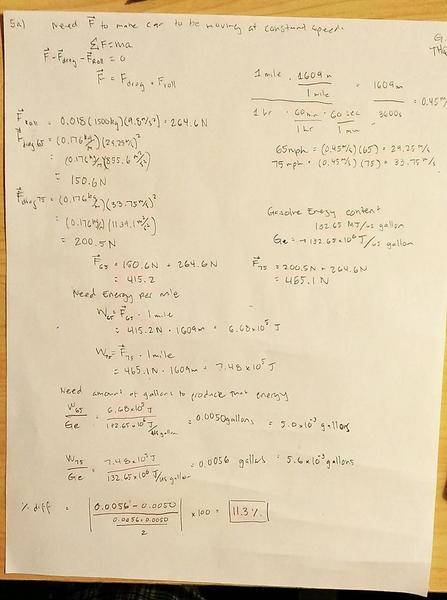 5a) Need F to make car to be moving at constant speed.
G.
ΣF=ma
F - Fdrag - FRoll = 0
F = Fdrag + Froll
1 mile · 1609m / 1 mile = 1609m
1 hr · 60min / 1 hr · 60 sec / 1 min = 3600s = 0.45m/s
65mph = (0.45m/s)(65) = 29.25m/s
75mph = (0.45m/s)(75) = 33.75m/s
Froll = 0.018(1500kg)(9.8m/s²) = 264.6N
Fdrag65 = (0.176kg/m)(29.25m/s)²
= (0.176kg/m)(855.6m²/s²)
= 150.6N
Fdrag75 = (0.176kg/m)(33.75m/s)²
= (0.176kg/m)(1139.1m²/s²)
= 200.5N
Gasoline Energy content
132.65 MJ/us gallon
Ge = 132.65x10⁶ J/us gallon
F65 = 150.6N + 264.6N
= 415.2
F75 = 200.5N + 264.6N
= 465.1N
Need Energy per mile
W65 = F65 · 1 mile
= 415.2N · 1609m = 6.68x10⁵ J
W75 = F75 · 1 mile
= 465.1N · 1609m = 7.48x10⁵ J
Need amount of gallons to produce that energy
W65 / Ge = 6.68x10⁵ J / 132.65x10⁶ J/us gallon = 0.0050gallons = 5.0x10⁻³ gallons
W75 / Ge = 7.48x10⁵ J / 132.65x10⁶ J/us gallon = 0.0056 gallons = 5.6x10⁻³ gallons
% diff = | 0.0056 - 0.0050 / (0.0056+0.0050 / 2) | x 100 = 11.3%